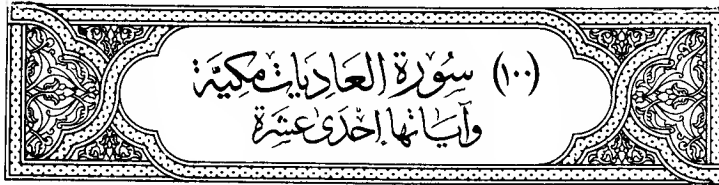 (١٠٠) سُورَة العَاديَات مَكيَّة
وَآيَاتهَا إحْدَى عَشرَة